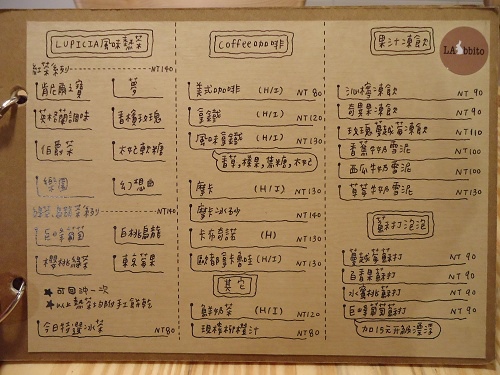 LUPICIA風味熱茶
紅茶系列 NT140
肯尼爾之寶 夢
英格蘭調味 青檸玫瑰
伯爵茶 太妃軟糖
樂園 幻想曲
綠茶、烏龍茶系列 NT140
巨峰葡萄 白桃烏龍
櫻桃綠茶 東京蘋果
★可回沖一次
★以上熱茶均附手工餅乾
今日特選冰茶 NT80
Coffee咖啡
美式咖啡 (H/I) NT 80
拿鐵 (H/I) NT120
風味拿鐵 (H/I) NT130
香草,榛果,焦糖,太妃
摩卡 (H/I) NT130
摩卡冰沙 NT140
卡布奇諾 (H) NT130
歐都夏卡魯哇 (H/I) NT130
其它
鮮奶茶 (H/I) NT120
現榨柳橙汁 NT80
果汁凍飲
LARbbito
沁檸凍飲 NT 90
奇異果凍飲 NT 90
玫瑰蔓越莓凍飲 NT110
香蕉牛奶雪泥 NT100
西瓜牛奶雪泥 NT100
草莓牛奶雪泥 NT130
蘇打泡泡
蔓越莓蘇打 NT 90
百香果蘇打 NT 90
水蜜桃蘇打 NT 90
巨峰葡萄蘇打 NT 90
加15元升級漂浮